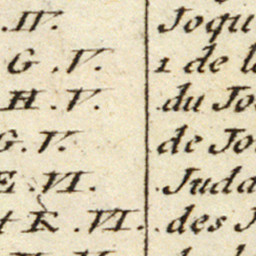 .IV. Joqu
G .V. 1 de l
H .V. du Jo
G.V. de Jo
E .VI. Juda
K .VI. des J